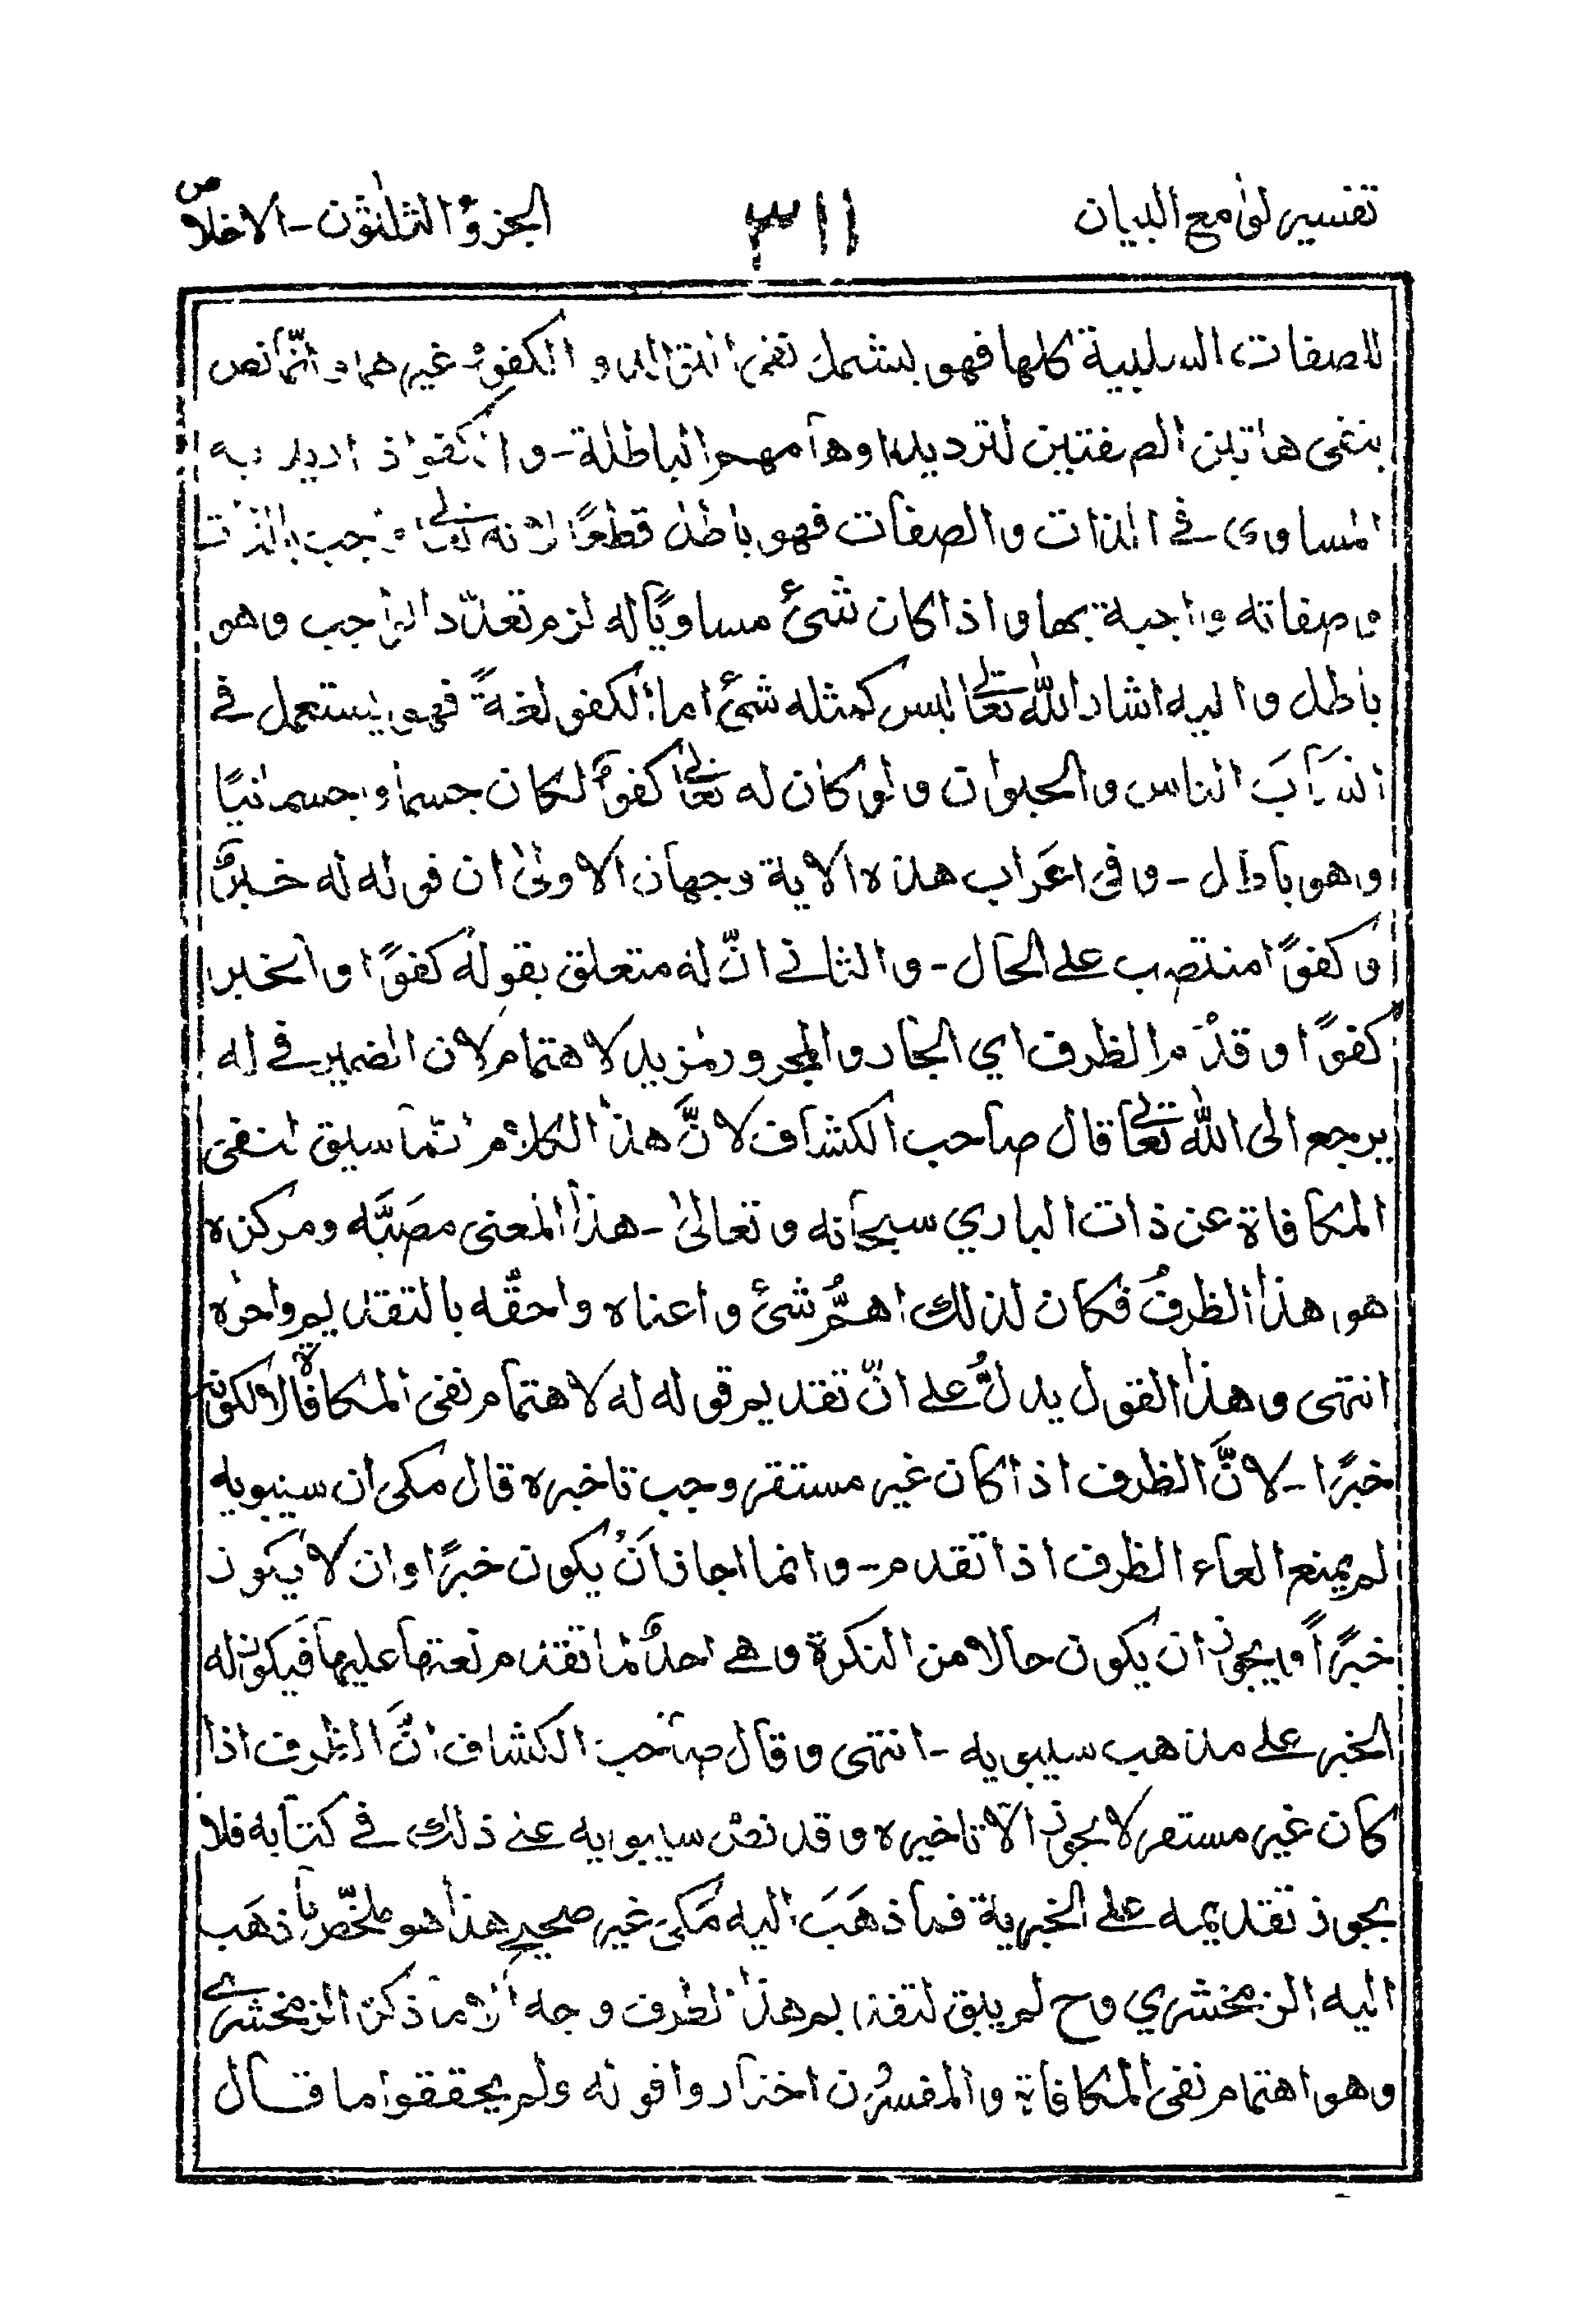 تفسير لوامع البيان
٣١١
الجزؤ الثلثون - الاخلاص
للصفات السلبية كلها فهو يشمل نفى التوالد والكفو غيرهما وانمّا نص
بنفى هاتين الصفتين لترديد اوهامهم الباطلة - و الكفو اذ اريد به
المساوى فى الذات والصفات فهو باطل قطعًا لانه تعالى واجب بالذات
وصفاته واجبة بها واذا كان شئ مساويًا له لزم تعدّد الواجب وهو
باطل واليه اشار الله تعالى ليس كمثله شئ اما الكفو لغةً فهو يستعمل فى
الناس والحيوان ولو كان له تعالى كفوٌ لكان جسما وجسمانيًا
وهو باطل - وفى اعراب هذه الاية وجهان الاولىٰ ان قوله له خبرٌ
وكفوًا منتصب على الحال - والثانى انّ له متعلق بقوله كفوًا والخبر
كفوًا وقدّم الظرف اي الجار والمجرور لمزيد لاهتمام لان الضمير فى له
يرجع الى الله تعالى قال صاحب الكشاف لانَّ هذا الكلام انما سيق لنفى
المكافاة عن ذات الباري سبحانه وتعالىٰ - هذا المعنى مصَبَّه ومركزه
هو هذا الظرفُ فكان لذلك اهمُّ شئ واعناه واحقّه بالتقديم واحره
انتهى وهذا القول يدلُّ على انّ تقديم قوله له لاهتمام نفى المكافاة لا لكونه
خبرًا - لانَّ الظرف اذا كان غير مستقر وجب تاخيره قال مكى ان سيبويه
لم يمنع الغاء الظرف اذا تقدم - وانما اجاز انَ يكون خبرًا وان لا يكون
خبرًا ويجوز ان يكون حالا من النكرة وهى احدٌ لما تقدم نعتها عليها فيكون له
الخبر على مذهب سيبويه - انتهى وقال صاحب الكشاف انَّ الظرف اذا
كان غير مستقر لا يجوز الا تاخيره وقد نصّ سيبوايه على ذلك فى كتابه فلا
يجوز تقديمه على الخبرية فما ذهَبَ اليه مَكى غير صحيح هذا هو ملخّص ما ذهَب
اليه الزمخشري وح لم يبق لتقديم هذا الظرف وجه الا ما ذكره الزمخشرى
وهو اهتمام نفى المكافاة والمفسرُون اختاروا قوله ولم يحققوا ما قال